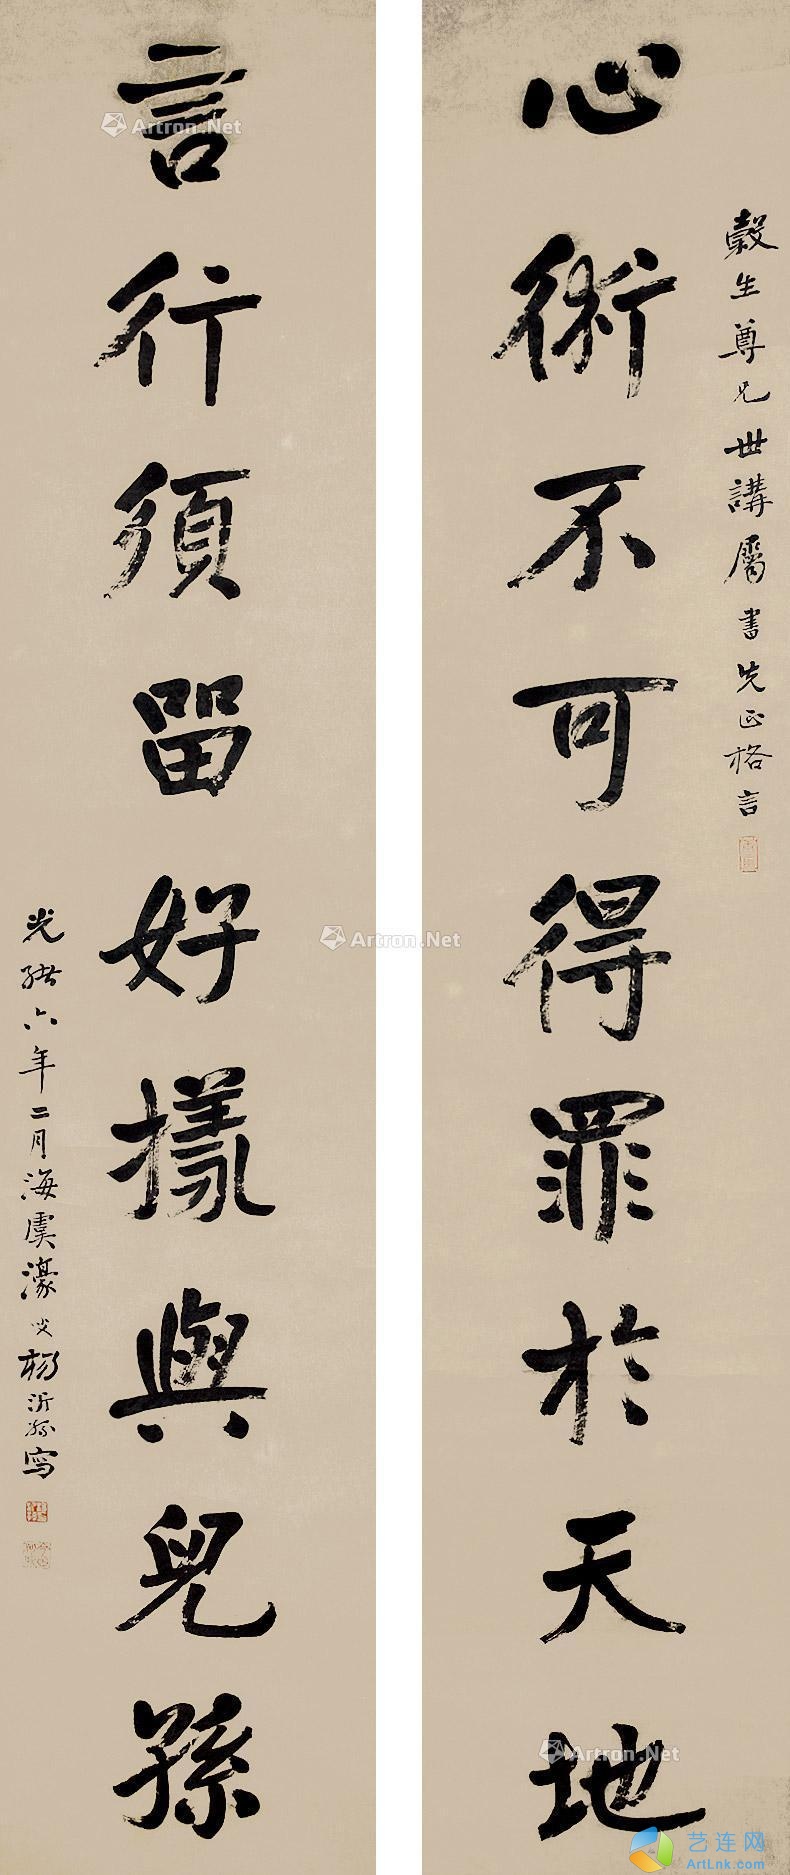 穀生尊兄世講屬書先正格言
心術不可得罪於天地
言行須留好様與兒孫
光緒六年二月海虞濠叟楊沂孫寫
Artron.Net
Artron.Net
Artron.Net
Artron.Net
艺连网
ArtLnk.com